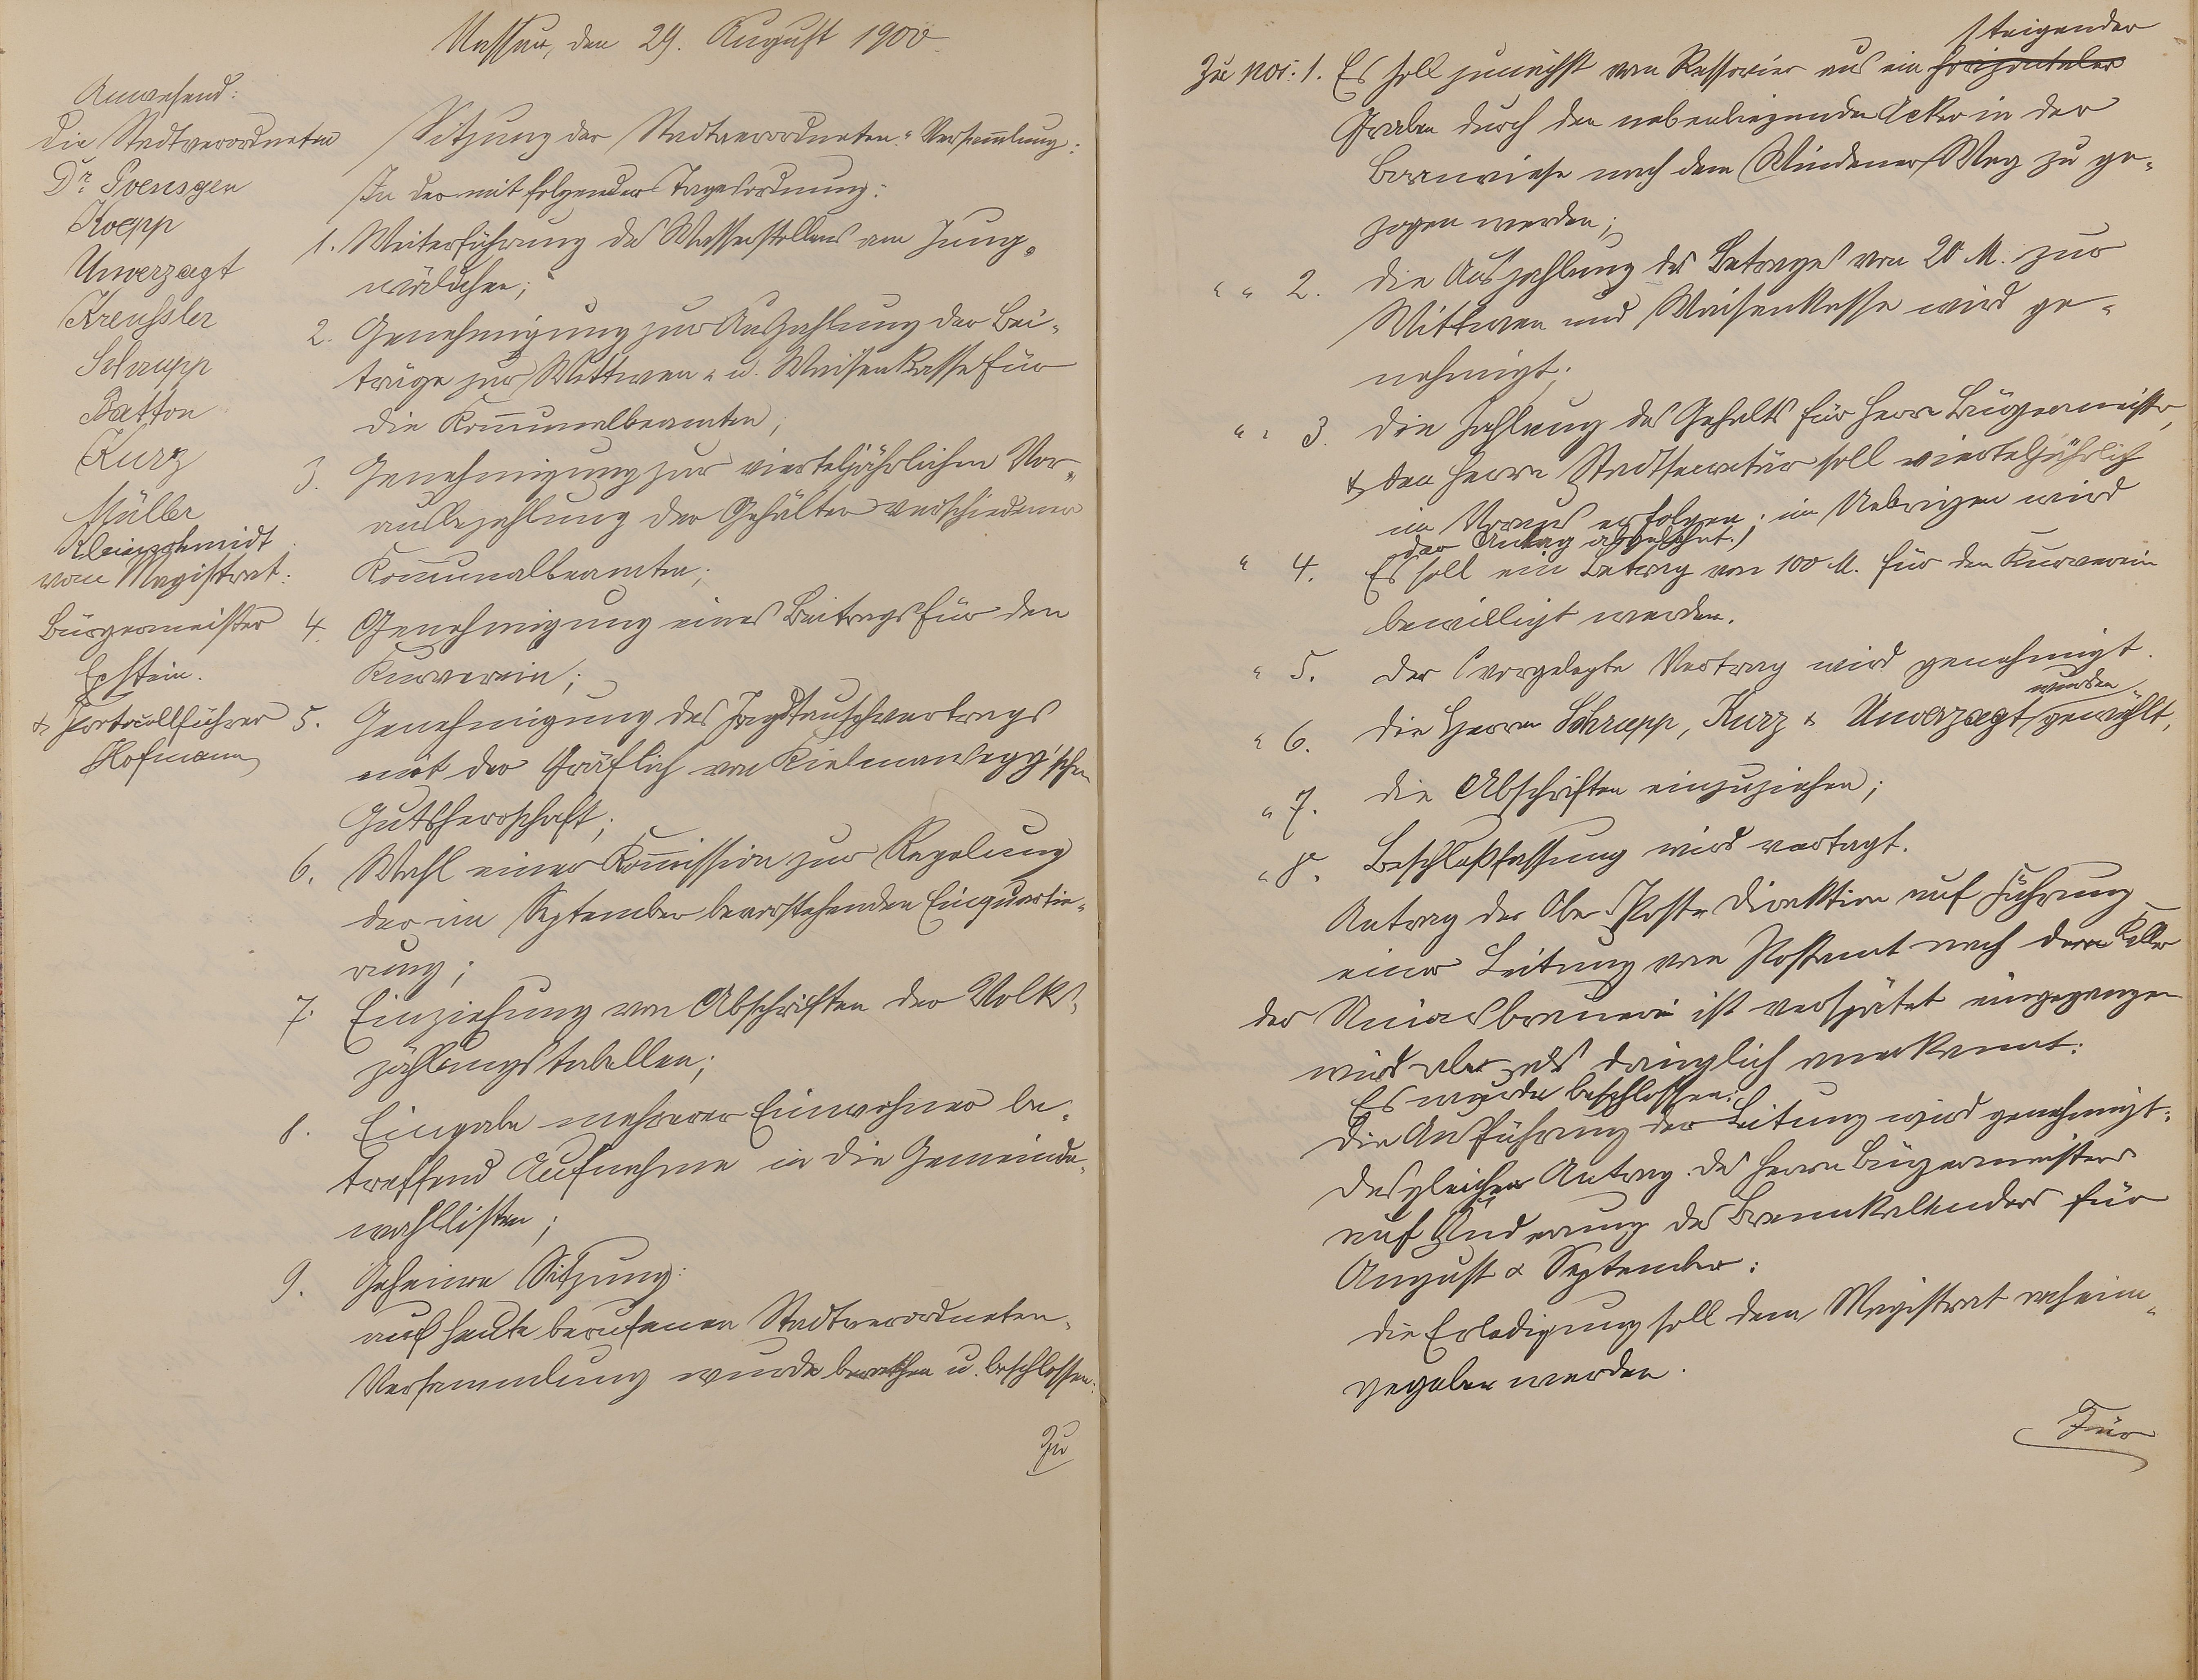 Nassau, den 29. August 1900.
Anwesend:
die Stadtverordneten
Dr. Poensgen
Koepp
Unverzagt
Kreußler
Schrupp
Batton
Kurz
Müller
Kleinschmidt
vom Magistrat:
Bürgermeister
Epstein.
& Protocollführer
Hofmann
Sitzung der Stadtverordneten-Versam̅lung:
In der mit folgender Tagesordnung:
1. Weiterführung des Wasserstollens am Jung-
wäldchen;
2. Genehmigung zur Auszahlung der Bei-
träge zur Wittwen- u. Waisenkasse für
die Kom̅unalbeamten;
3. Genehmigung zur vierteljährlichen Vor-
ausbezahlung der Gehälter verschiedener
Kom̅unalbeamten;
4. Genehmigung eines Beitrags für den
Kurverein;
5. Genehmigung des Jagdtauschvertrags
mit der Gräflich von Kielmansegg'schen
Gutsherrschaft;
6. Wahl einer Kom̅ission zur Regelung
der im September bevorstehenden Einquartie-
rung;
7. Einziehung von Abschriften der Volks-
zählungstabellen;
8. Eingabe mehrerer Einwohner be-
treffend Aufnahme in die Gemeinde-
wahllisten;
9. Geheime Sitzung:
auf heute berufenen Stadtverordneten-
Versammlung wurde berathen u. beschlossen:
Zu
steigender
Zu pos: 1. Es soll zunächst vom Reservoir aus ein horizontaler
Graben durch den nebenliegenden Acker in der
Bornwiese nach dem Windener Weg zu ge-
zogen werden;
" " 2. die Auszahlung des Betrages von 20 M. zur
Wittwen und Waisenkasse wird ge-
nehmigt;
" " 3. die Zahlung des Gehalts für Herrn Bürgermeister,
& den Herrn Stadtsecretär soll vierteljährlich
im Voraus erfolgen; im Uebrigen wird
der Antrag abgelehnt.
" 4. Es soll ein Betrag von 100 M. für den Kurverein
bewilligt werden.
" 5. der vorgelegte Vertrag wird genehmigt.
wurden
" 6. die Herren Schrupp, Kurz & Unverzagt gewählt,
" 7. die Abschriften einzuziehen;
" 8. Beschlußfassung wird vertagt.
Antrag der Ober-Post-Direktion auf Führung
einer Leitung vom Postamt nach dem Keller
der Unionsbrauerei ist verspätet eingegangen
wird aber als dringlich anerkannt:
Es wurde beschlossen:
die Ausführung der Leitung wird genehmigt:
desgleichen Antrag des Herrn Bürgermeisters
auf Änderung des Brennkalenders für
August & September:
die Erledigung soll dem Magistrat anheim-
gegeben werden.
Für